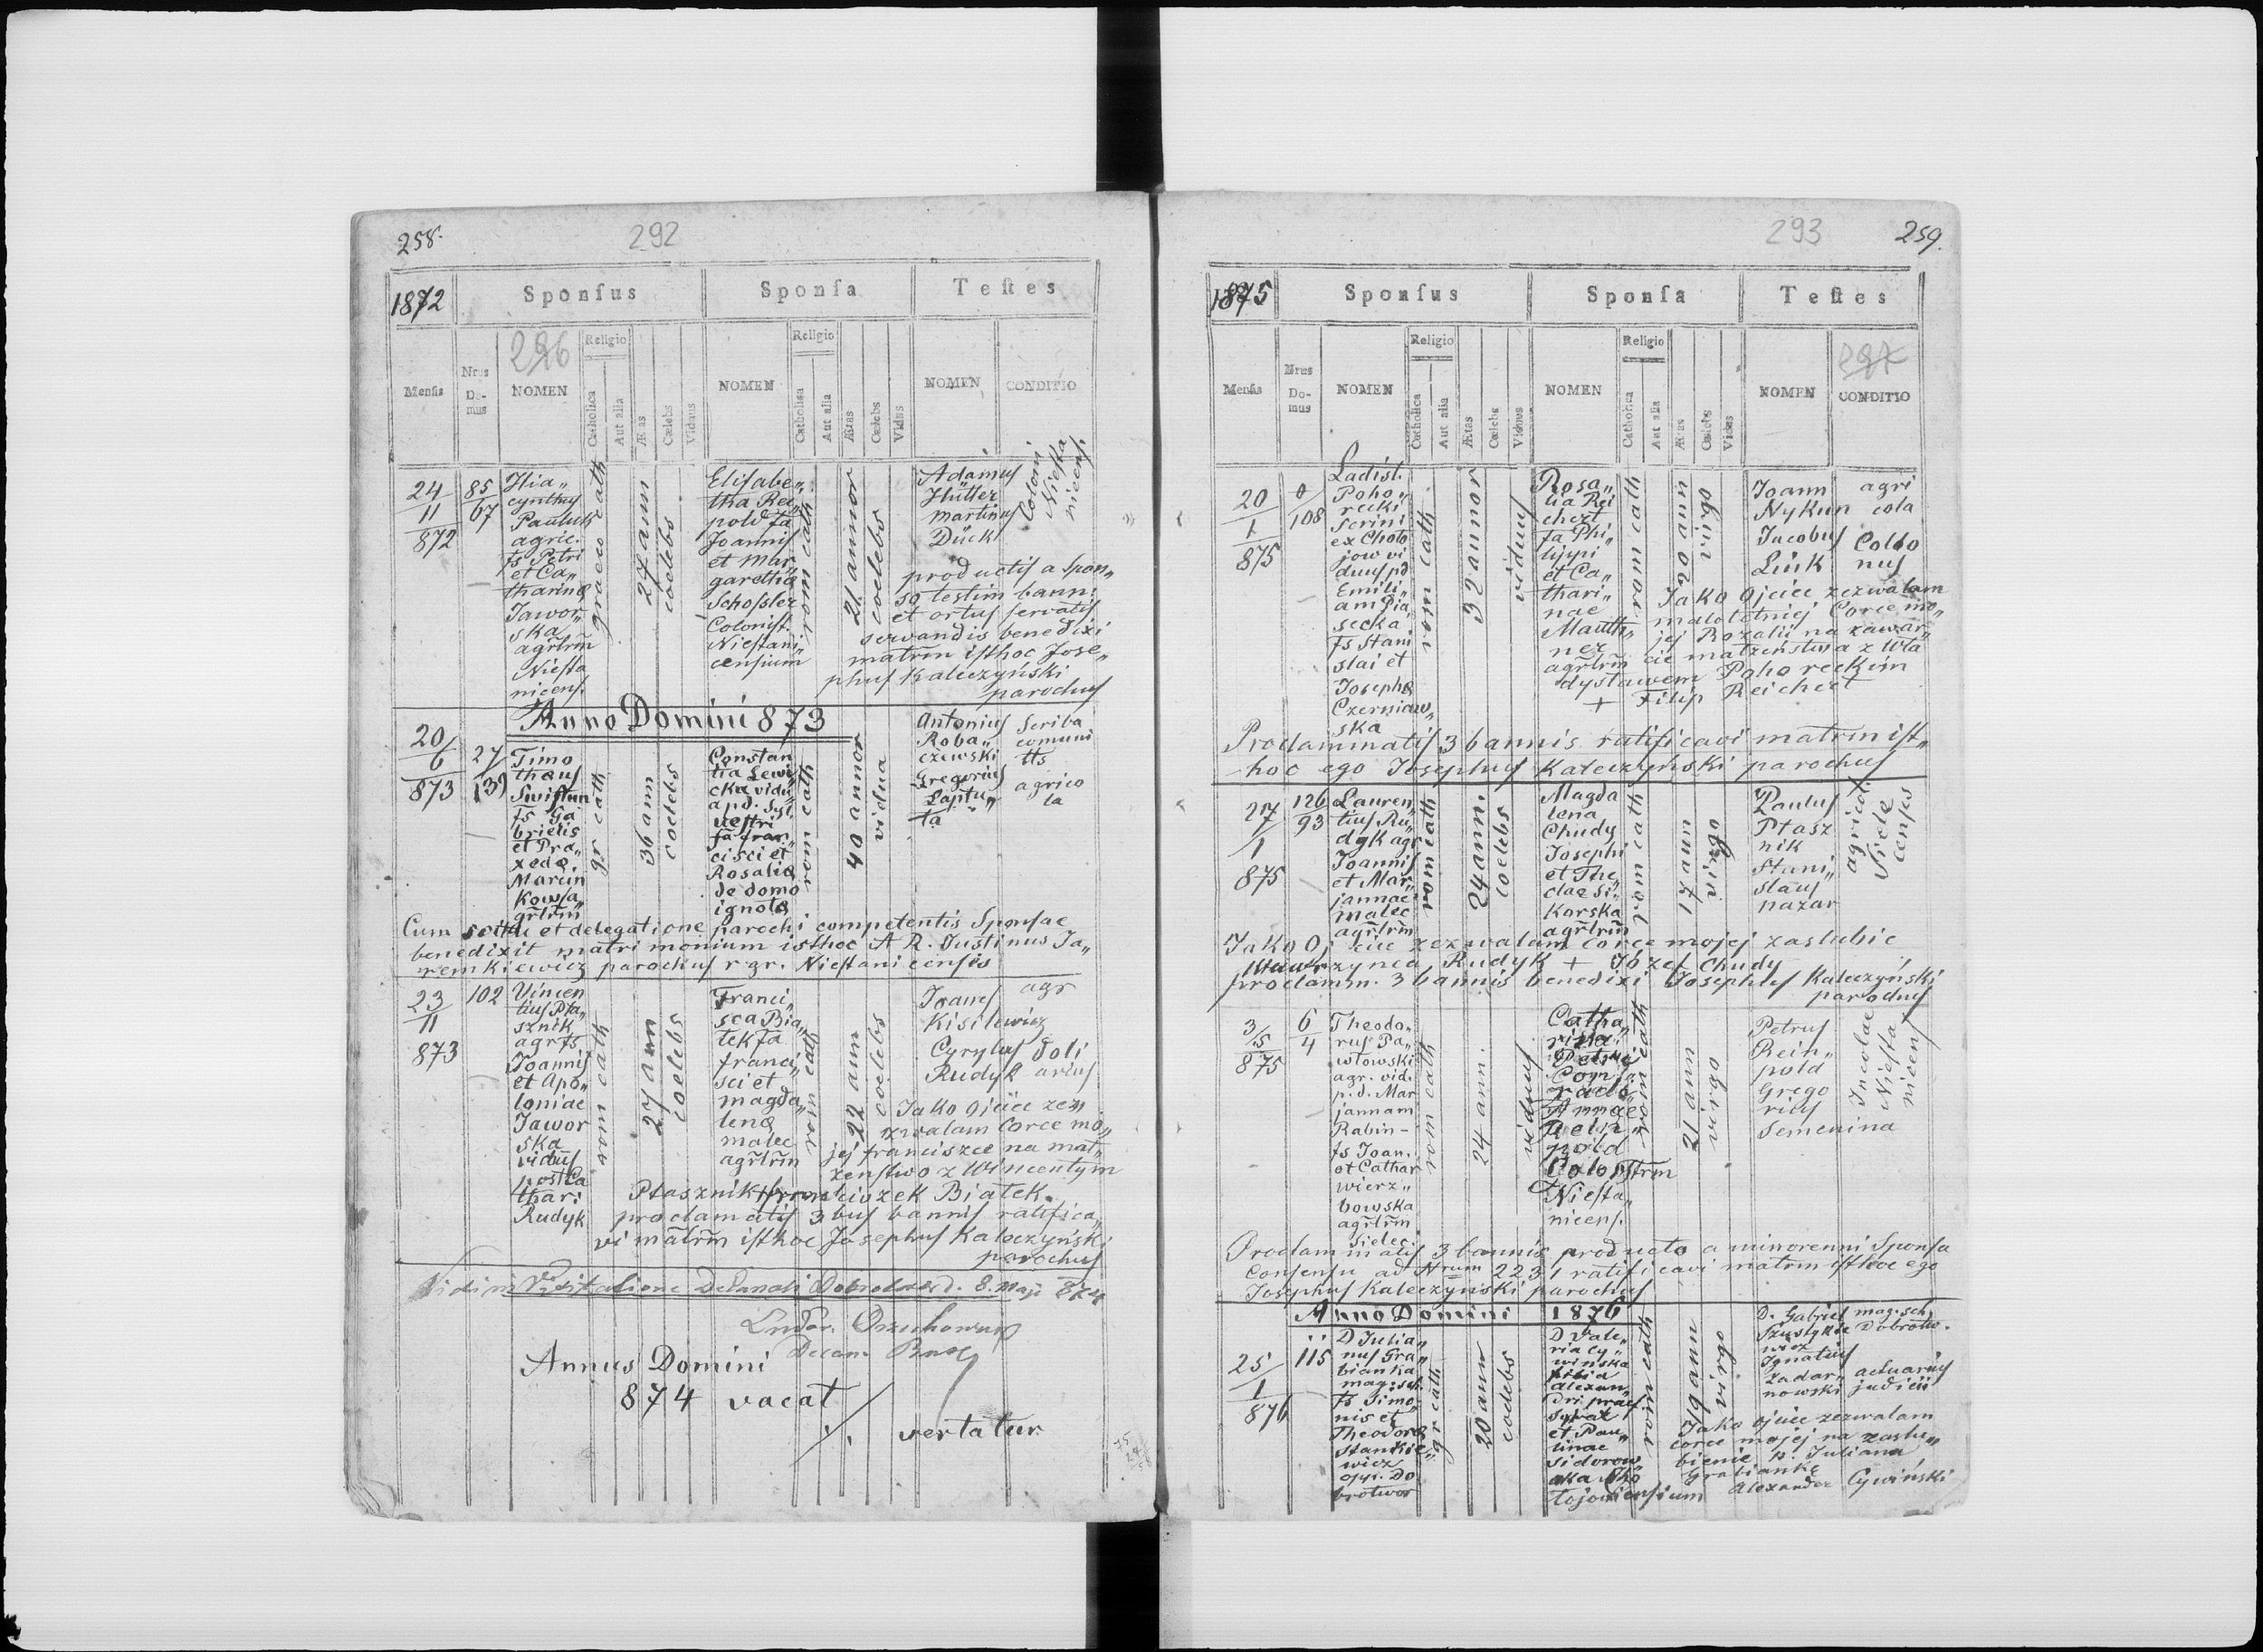 258.
292
1872
Sponſus
Sponſa
Teſtes
Menſis
Nrus Do-mus
296
NOMEN
Religio
Catholica
Aut alia
Ætas
Cœlebs
Viduus
NOMEN
Religio
Catholica
Aut alia
Ætas
Cœlebs
Vidua
NOMEN
CONDITIO
24
11
872
85
67
Hia„
cynthus
Pauluk
agric.
fs Petri
et Ca„
tharinæ
Jawor„
ska
agrlrm
Niesta
nicens.
graeco cath
27 ann
coelebs
Elisabe„
tha Rei„
pold fa
Joannis
et Mar„
garetha
Schossler
Colonist.
Niestani„
censium
rom cath
21 annor
coelebs
Adamus
Hütter
Martinus
Dück
Coloni
Niesta
nicens.
productis a spon„
so testim bann:
et ortus servatis
servandis benedixi
matrm isthoc Jose„
phus Kaleczyński
parochus
Anno Domini 873
20
6
873
27
(3)
Timo
theus
Swistun
fs Ga
brielis
et Pra„
xedæ
Marcin
kowsa„
grlrm
gr cath
36 ann
coelebs
Constan
tia Lewi
cka vidu
a p.d. Syl
vestri
fa fran„
cisci et
Rosaliæ
de domo
ignotæ
rom cath
40 annor
vidua
Antonius
Roba„
czewski
Gregorius
Laptu„
ta
Scriba
comuni
tts
agrico
la
Cum scitu et delegatione parochi competentis Sponsae
benedixit matrimonium isthoc A R. Justinus Ja„
remkiewicz parochus r gr. Niestanicensis
23
11
873
102
Vincen
tius Pta„
sznik
agr fs
Joannis
et Apo„
loniae
Jawor
ska
viduus
post Ca
thar:
Rudyk
rom cath
27 ann
coelebs
Franci„
sca Bia„
tek fa
franci„
sci et
magda„
lenæ
malec
agrlrm
rom cath
22 ann
coelebs
Joanes
Kisilewicz
Cyrylus
Rudyk
agr
doli
arius
Jako ojciec zez
zwalam Corce mo„
jej franciszce na mał„
żeństwo z Wincentym
Ptasznik + franciszek Białek.
proclamatis 3 bus bannis ratifica„
vi matrm isthoc Josephus Kaleczyński
parochus
Vidi in Visitatione Decanali Dobrotwor d. 8. Maji 874
Annus Domini
874 vacat
./. vertatur
293
259.
1875
Sponſus
Sponſa
Teſtes
Menſis
Nrus Do-mus
NOMEN
Religio
Catholica
Aut alia
Ætas
Cœlebs
Viduus
NOMEN
Religio
Catholica
Aut alia
Ætas
Cœlebs
Vidua
NOMEN
297
CONDITIO
20
1
875
0
108
Ladisl.
Poho„
recki
serini
ex Choto
jow vi
duus pd
Emili„
am Pia„
secka
fs Stani
slai et
Josephæ
Czerniaw„
ska
rom cath
32 annor
viduus
Rosa„
lia Rei
chert
fa Phi„
lippi
et Ca„
thari„
nae
Mauth„
ner
agrlrm
rom cath
20 ann
virgo
Joann
Nykun
Jacobus
Link
agri
cola
Collo
nus
Jako Ojciec zezwalam
małoletniej Corce mo„
jej Rozalii na zawar„
cie małżeństwa z Wła
dysławem Pohoreckim
+ Filip Reichert
Proclammatis 3 bannis ratificavi matrm ist„
hoc ego Josephus Kaleczyński parochus
27
1
875
126
93
Lauren„
tius Ru„
dyk agr
Joannis
et Mar„
jannae
malec
agrlrm
rom cath
24 ann.
coelebs
Magda
lena
Chudy
Josephi
et The„
clae Si„
korska
agrlrm
rom cath
17 ann
virgo
Paulus
Ptasz
nik
Stani„
slaus
nazar
agricol
Siele
censes
Jako Ojciec zezwalam corce mojej zaslubic
Wawrzynca Rudyk + Józef Chudy
proclamm. 3 bannis benedixi Josephus Kaleczyński
parochus
3/5
875
6
4
Theodo„
rus Pa„
włowski
agr. vid.
p.d. Mar
jannam
Rabin-
fs Joan.
et Cathar
wierz„
bowska
agrlrm
Sielec.
rom cath
24 ann.
viduus
Catha„
rina
Petri
Conr„
radi
Annae
Rein„
pold
Colo strm
Niesta„
nicens.
rom cath
21 ann
virgo
Petrus
Rein„
pold
Grego
rius
Semenina
Incolae
Niesta
nicens
Proclammatis 3 bannis producto a minorenni Sponsa
Consensu ad Nrum 2231 ratificavi matrm isthoc ego
Josephus Kaleczyński parochus
Anno Domini 1876
25
1
876
115
D Julia„
nus Gra„
bianka
mag. sch.
fs Simo„
nis et
Theodoræ
Stankie„
wicz
opp. Do
brotwor
gr cath
20 ann
coelebs
D Vale„
ria Cy„
wińska
filia
Alexan„
dri
et Pau„
linae
Sidorow„
ska Cho
tojowiensium
rom cath
19 ann
virgo
D. Gabriel
Szustykie
wicz
Ignatius
Zadar„
nowski
mag. sch
Dobrotw.
actuarius
judicii
Jako ojciec zezwalam
corce mojej na zaslu„
bienie p. Juliana
Grabiankę
Alexander Cywiński